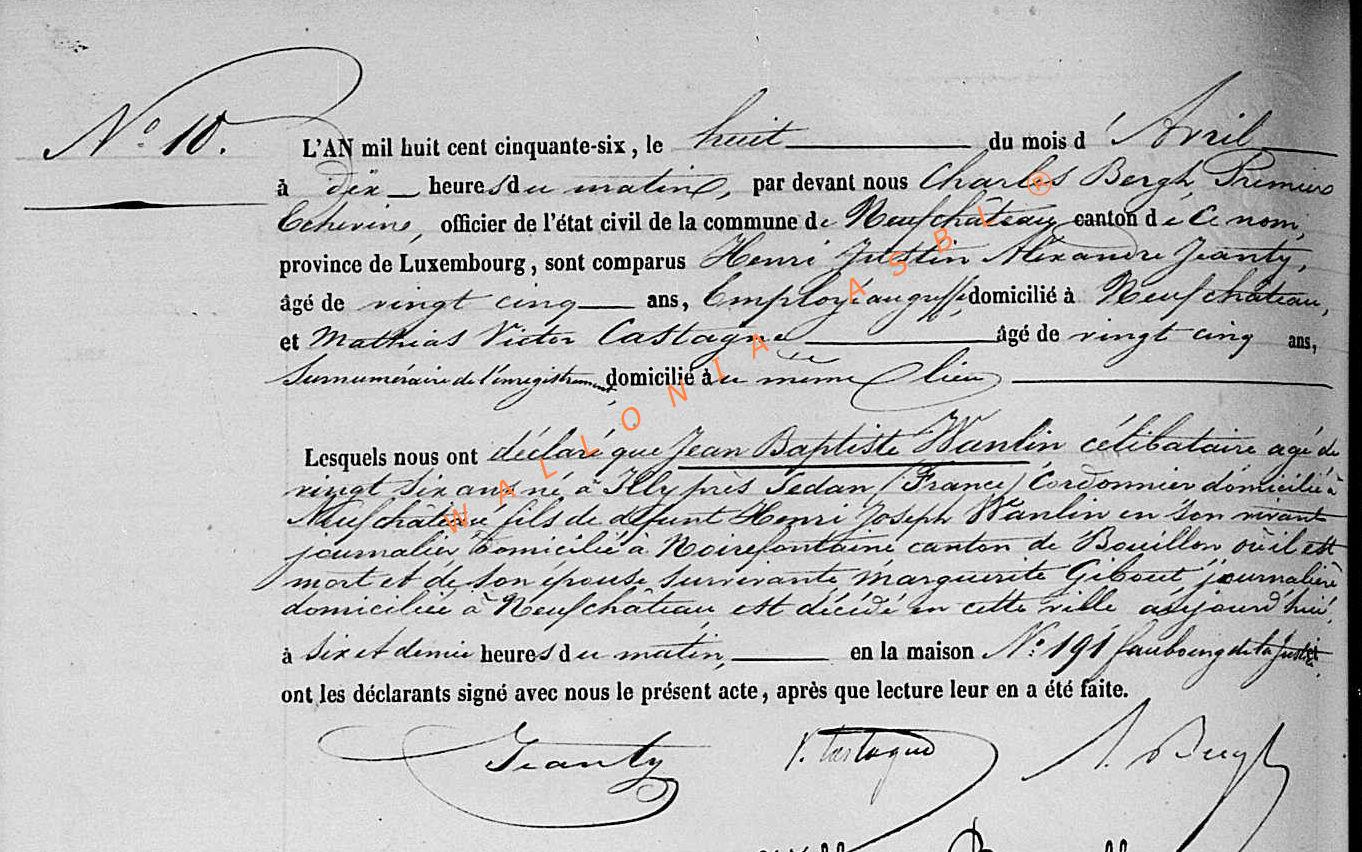 N° 10.
L'AN mil huit cent cinquante-six, le huit du mois d'Avril
à dix heures du matin, par devant nous Charles Bergh, Premier
Echevin, officier de l'état civil de la commune de Neufchâteau canton de Ce nom,
province de Luxembourg, sont comparus Henri Justin Alexandre Jeanty,
âgé de vingt cinq ans, Employé au greffe, domicilié à Neufchâteau,
et Mathias Victor Castagne âgé de vingt cinq ans,
Surnuméraire de l'enregistrement, domicilié au même lieu
Lesquels nous ont déclaré que Jean Baptiste Wanlin célibataire agé de
vingt six ans né à Illy près Sedan (France) Cordonnier domicilié à
Neufchâteau fils de défunt Henri Joseph Wanlin en son vivant
journalier domicilié à Noirefontaine canton de Bouillon où il est
mort et de son épouse survivante Marguerite Gibout journalière
domiciliée à Neufchâteau, est décédé en cette ville aujourd'hui,
à six et demie heures du matin, en la maison N° 191 faubourg de la Justice
ont les déclarants signé avec nous le présent acte, après que lecture leur en a été faite.
Jeanty V. Castagne Bergh
WALLONIA ASBL ®